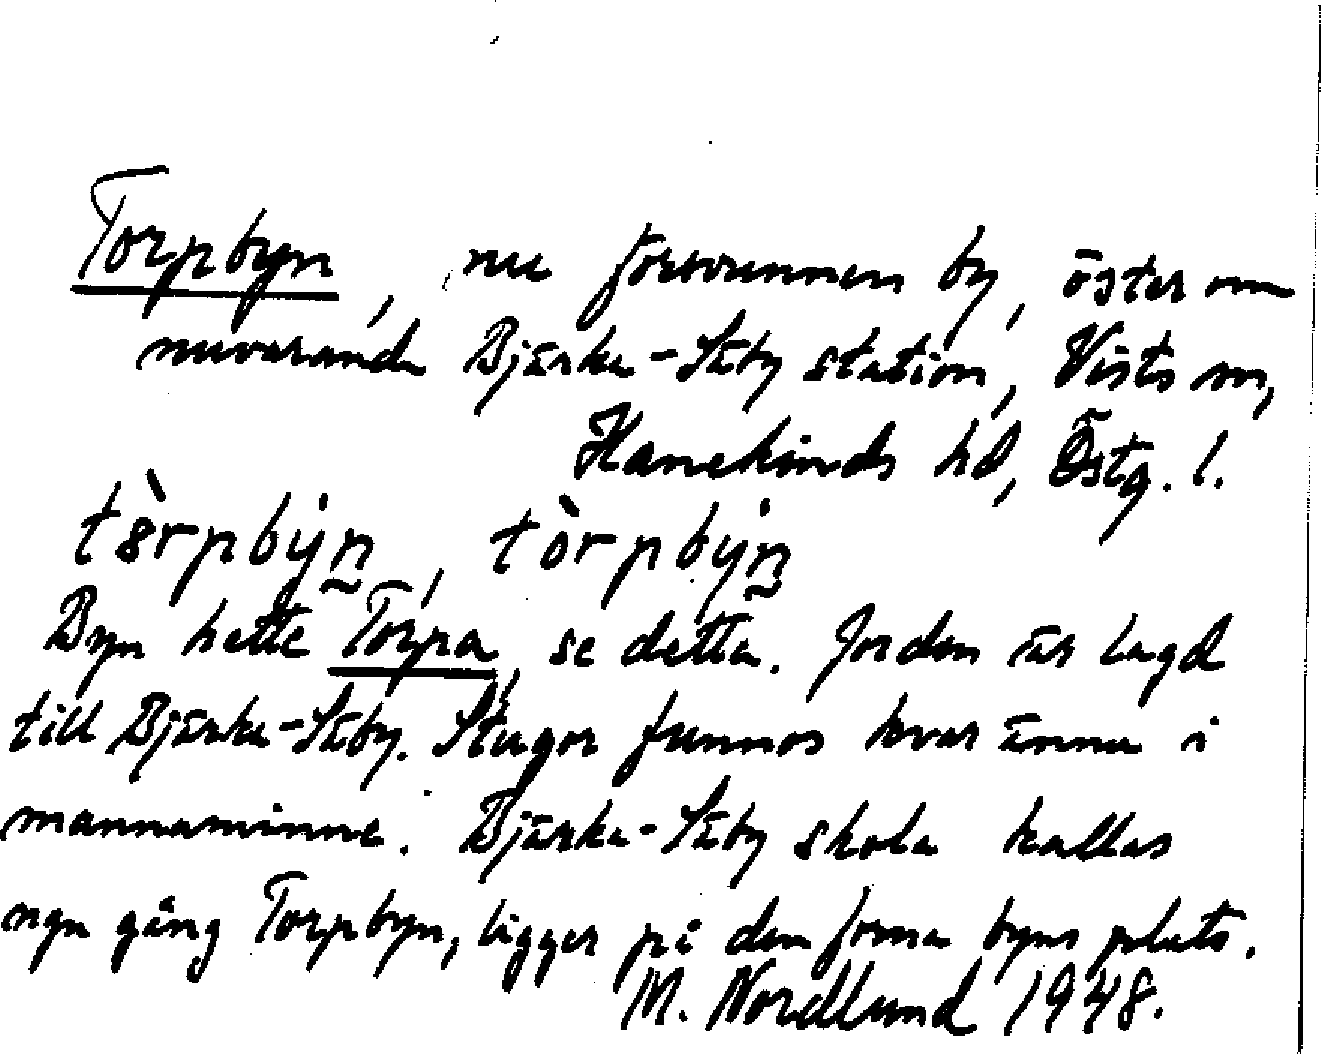 Torpbyn, nu försvunnen by, öster om
nuvarande Bjärka-Säby station, Vists sn,
Hanekinds hd, Östg. l.
tòrpbẏn, tòrpbẏn
Byn hette Torpa, se detta. Jorden är lagd
till Bjärka-Säby. Stugor funnos kvar ännu i
mannaminne. Bjärka-Säby skola kallas
ngn gång Torpbyn, ligger på den forna byns plats.
M. Nordlund 1948.